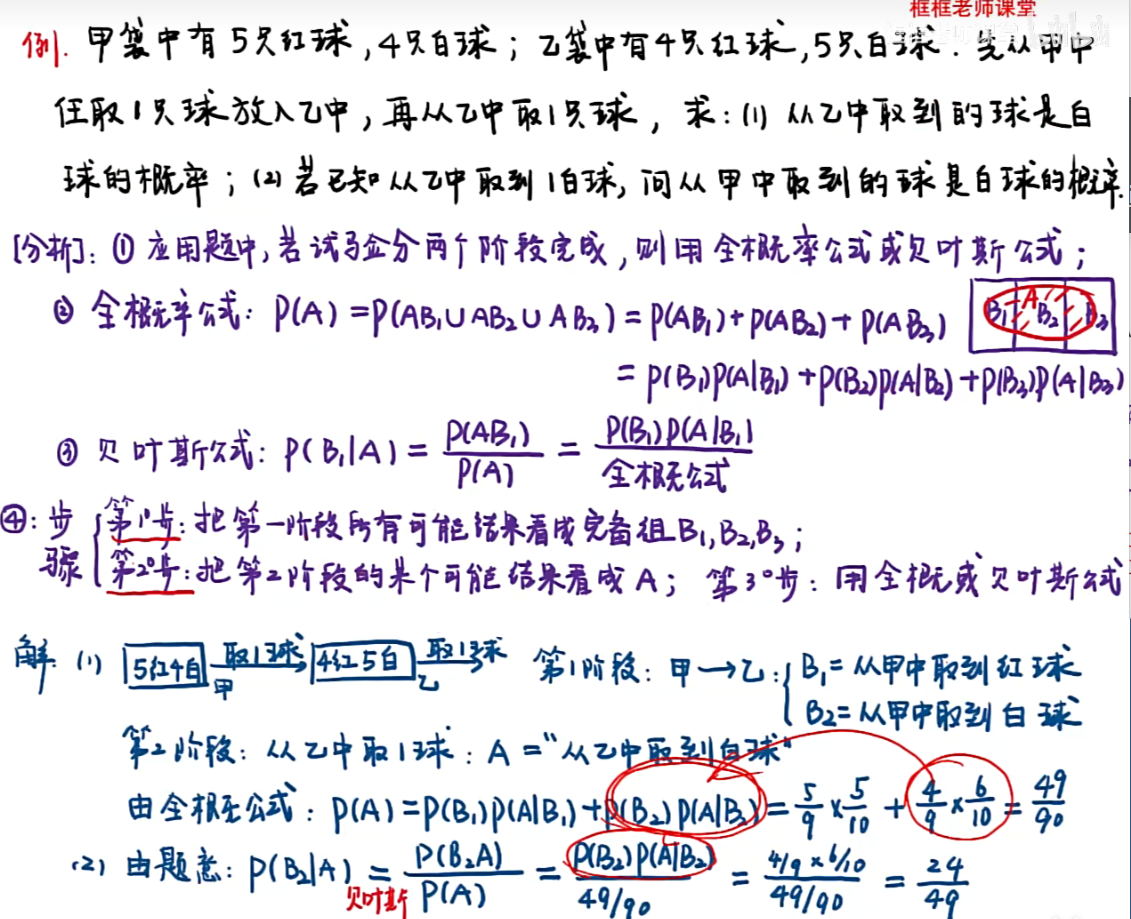 框框老师课堂
例. 甲袋中有5只红球,4只白球;乙袋中有4只红球,5只白球.先从甲中
任取1只球放入乙中,再从乙中取1只球,求:(1) 从乙中取到的球是白
球的概率;(2) 若已知从乙中取到1白球,问从甲中取到的球是白球的概率.
[分析]:① 应用题中,若试验分两个阶段完成,则用全概率公式或贝叶斯公式;
② 全概率公式: P(A)=P(AB₁∪AB₂∪AB₃)=P(AB₁)+P(AB₂)+P(AB₃)
B₁ A B₂ B₃
=P(B₁)P(A|B₁)+P(B₂)P(A|B₂)+P(B₃)P(A|B₃)
③ 贝叶斯公式: P(B₁|A)=P(AB₁)/P(A)=P(B₁)P(A|B₁)/全概公式
④:步骤 第1°步:把第一阶段所有可能结果看成完备组B₁,B₂,B₃;
第2°步:把第2阶段的某个可能结果看成A; 第3°步:用全概或贝叶斯公式
解:(1) 5红4白 取1球 甲 4红5白 取1球 乙 第1阶段:甲→乙:B₁=从甲中取到红球
B₂=从甲中取到白球
第2阶段:从乙中取1球:A="从乙中取到白球"
由全概公式:P(A)=P(B₁)P(A|B₁)+P(B₂)P(A|B₂)=5/9×5/10+4/9×6/10=49/90
(2) 由题意:P(B₂|A)=P(B₂A)/P(A)=P(B₂)P(A|B₂)/49/90=4/9×6/10/49/90=24/49
贝叶斯